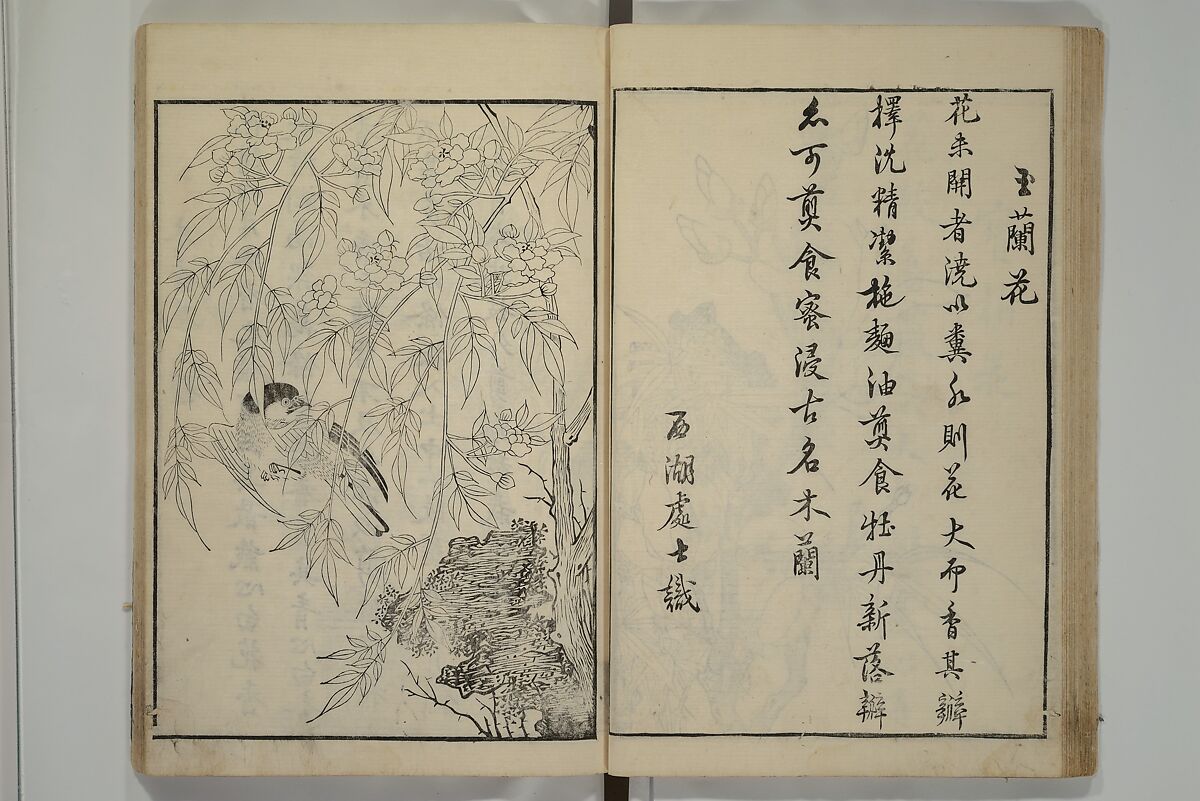 玉蘭花
花未開者澆以糞水則花大而香其瓣
擇洗精潔拖麵油煎食牡丹新落瓣
亦可煎食蜜浸古名木蘭
西湖處士識